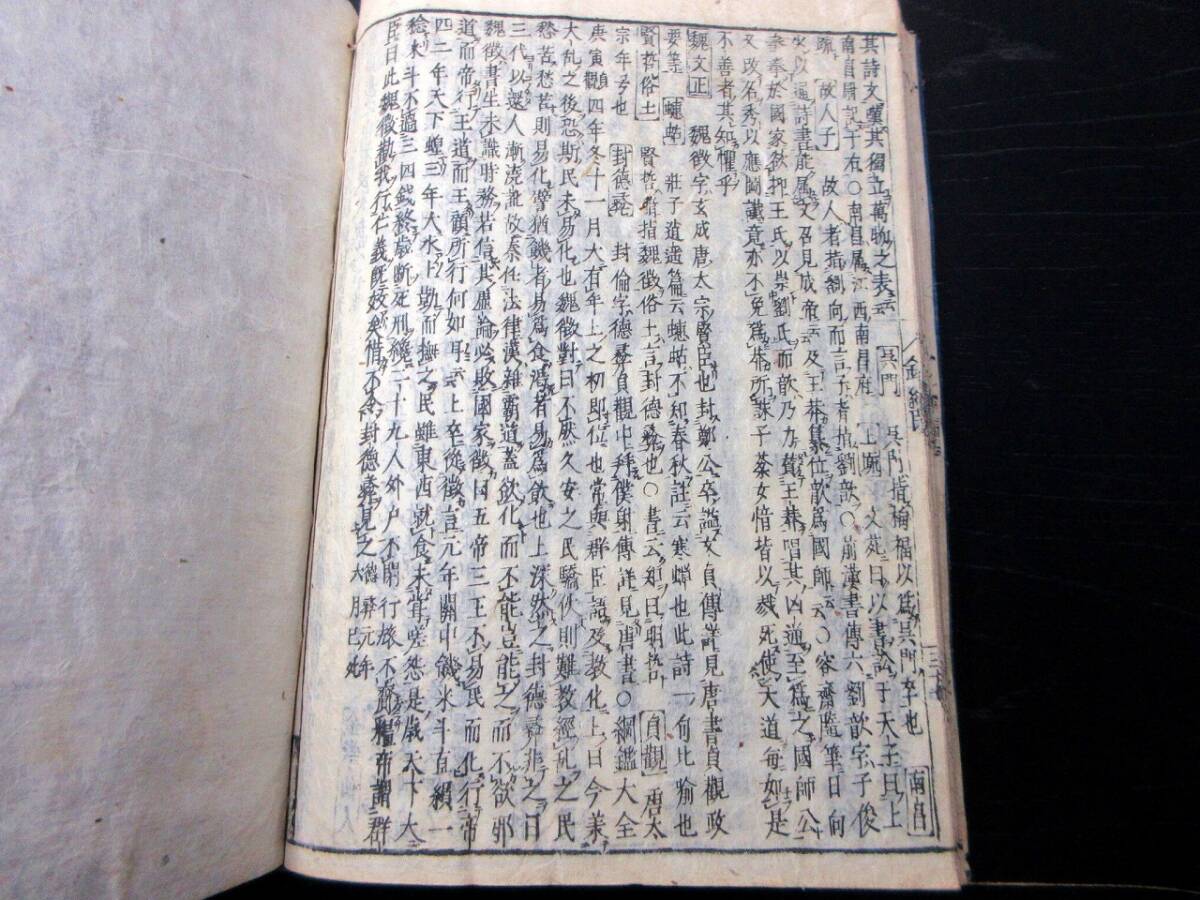 其詩文飄其獨立萬物之表云 呉門 呉門指梅福以爲呉門卒也 南昌
南昌圖記于右〇南昌属江西南昌府 上疏 文苑曰以書訟于天王曰上
疏 故人子 故人者指劉向而言子者指劉歆〇前漢書傳六劉歆字子俊
少以通詩書能属文召見成帝云及王莽簒位歆爲國師云〇容齋隨筆曰向
拳拳於國家欲抑王氏以崇劉氏而歆乃力賛王莽唱其凶逆至爲之國師公
又改名秀以應圖讖竟亦不免爲莽所誅子棻女愔皆以戮死使天道毎如是
不善者其知懼乎
魏文正 魏徴字玄成唐太宗賢臣也封鄭公卒謚文貞傳詳見唐書貞觀政
要等 蟪蛄 莊子逍遥篇云蟪蛄不知春秋註云寒蟬也此詩一句比喩也
賢哲俗士 賢哲者指魏徴俗士言封德彝也〇書云知曰明哲 貞觀 唐太
宗年号也 封德彝 封倫字德彝貞觀中拜僕射傳詳見唐書〇綱鑑大全
庚寅貞觀四年冬十一月大有年上之初即位也常與群臣語及教化上曰今羕
大乱之後恐斯民未易化也魏徴對曰不然久安之民驕佚則難教經乱之民
愁苦愁苦則易化譬猶饑者易爲食渇者易爲飲也上深然之封德彝非之曰
三代以還人漸澆訛故秦任法律漢雜霸道蓋欲化而不能豈能之而不欲邪
魏徴書生未識時務若信其虚論必敗國家徴曰五帝三王不易民而化行帝
道而帝行王道而王顧所行何如耳云上卒從徴言元年關中饑米斗直絹一
四二年天下蝗三年大水上勤而撫之民雖東西就食未甞嗟怨是歳天下大
稔米斗不過三四錢終歳断死刑纔二十九人外戸不閉行旅不齎糧帝謂群
臣曰此魏徴勸我行仁義既效矣惜不令封德彝見之德彝元年六月已死